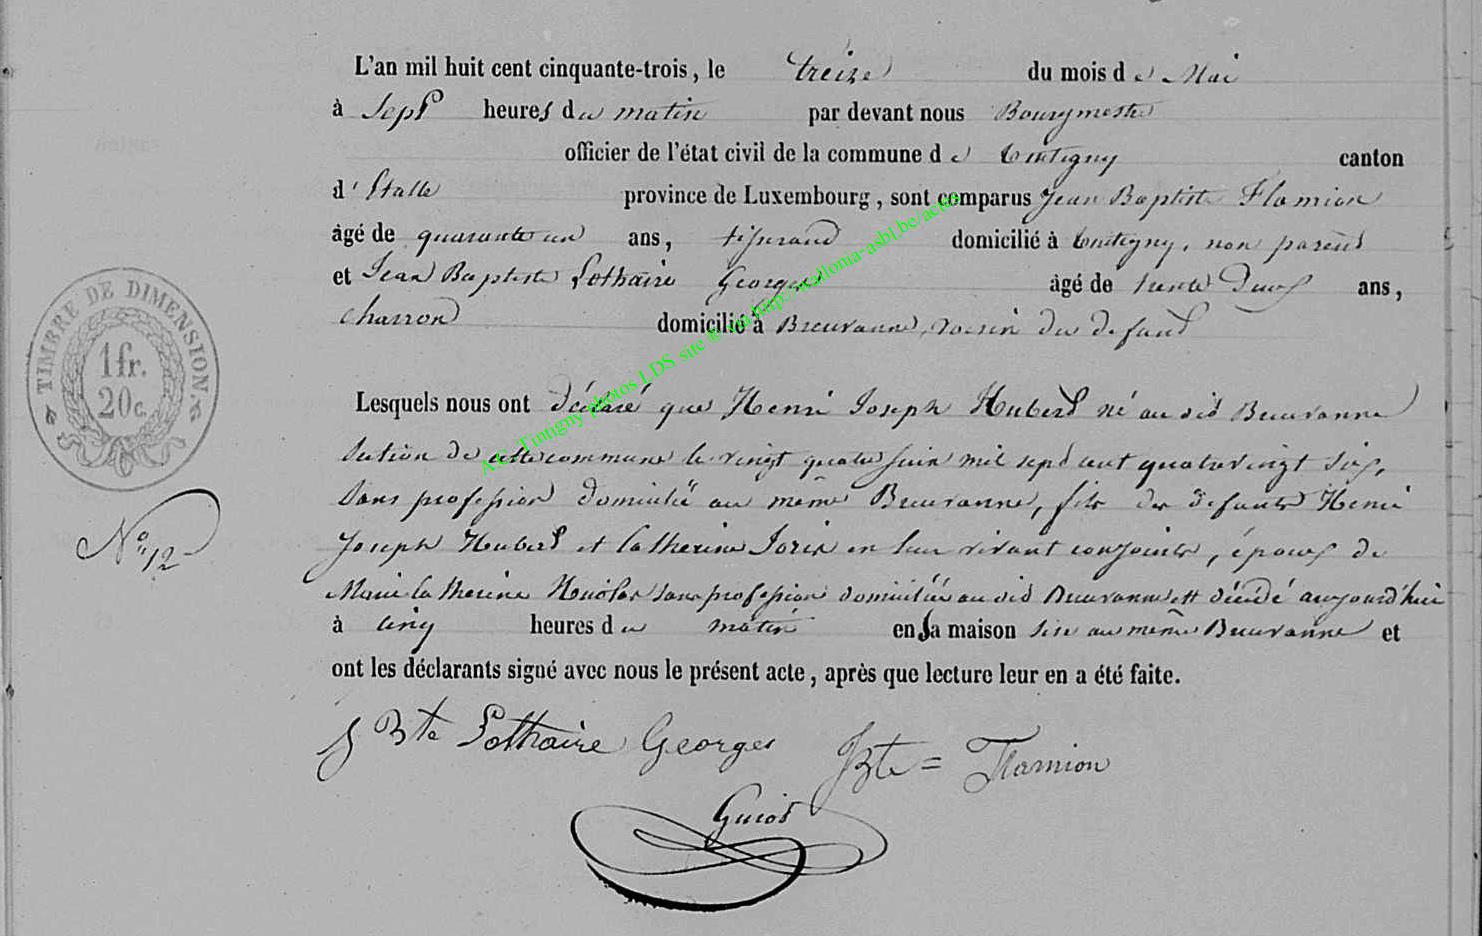 L'an mil huit cent cinquante-trois, le treize du mois de Mai
à Sept heures du matin par devant nous Bourgmestre
officier de l'état civil de la commune de Tintigny canton
d'Etalle province de Luxembourg, sont comparus Jean Baptiste Flamion
âgé de quarante un ans, tisserand domicilié à Tintigny, non parent
et Jean Baptiste Lothaire Georges âgé de trente deux ans,
charron domicilié à Breuvanne, voisin du defunt
Lesquels nous ont déclaré que Henri Joseph Hubert né au dit Breuvanne
section de cette commune le vingt quatre juin mil sept cent quatre vingt six,
sans profession domicilié au même Breuvanne, fils des defunts Henri
Joseph Hubert et Catherine en leur vivant conjoints, époux de
Marie Catherine sans profession domiciliée au dit Breuvanne est décédé aujourd'hui
à cinq heures du matin en sa maison sise au même Breuvanne et
ont les déclarants signé avec nous le présent acte, après que lecture leur en a été faite.
J Bte Lothaire Georges JBte = Flamion
Guiot
TIMBRE DE DIMENSION.
1 fr.
20 c.
N° 12
A.E. Tintigny photos LDS site via http://walloma-asbl.be/actes